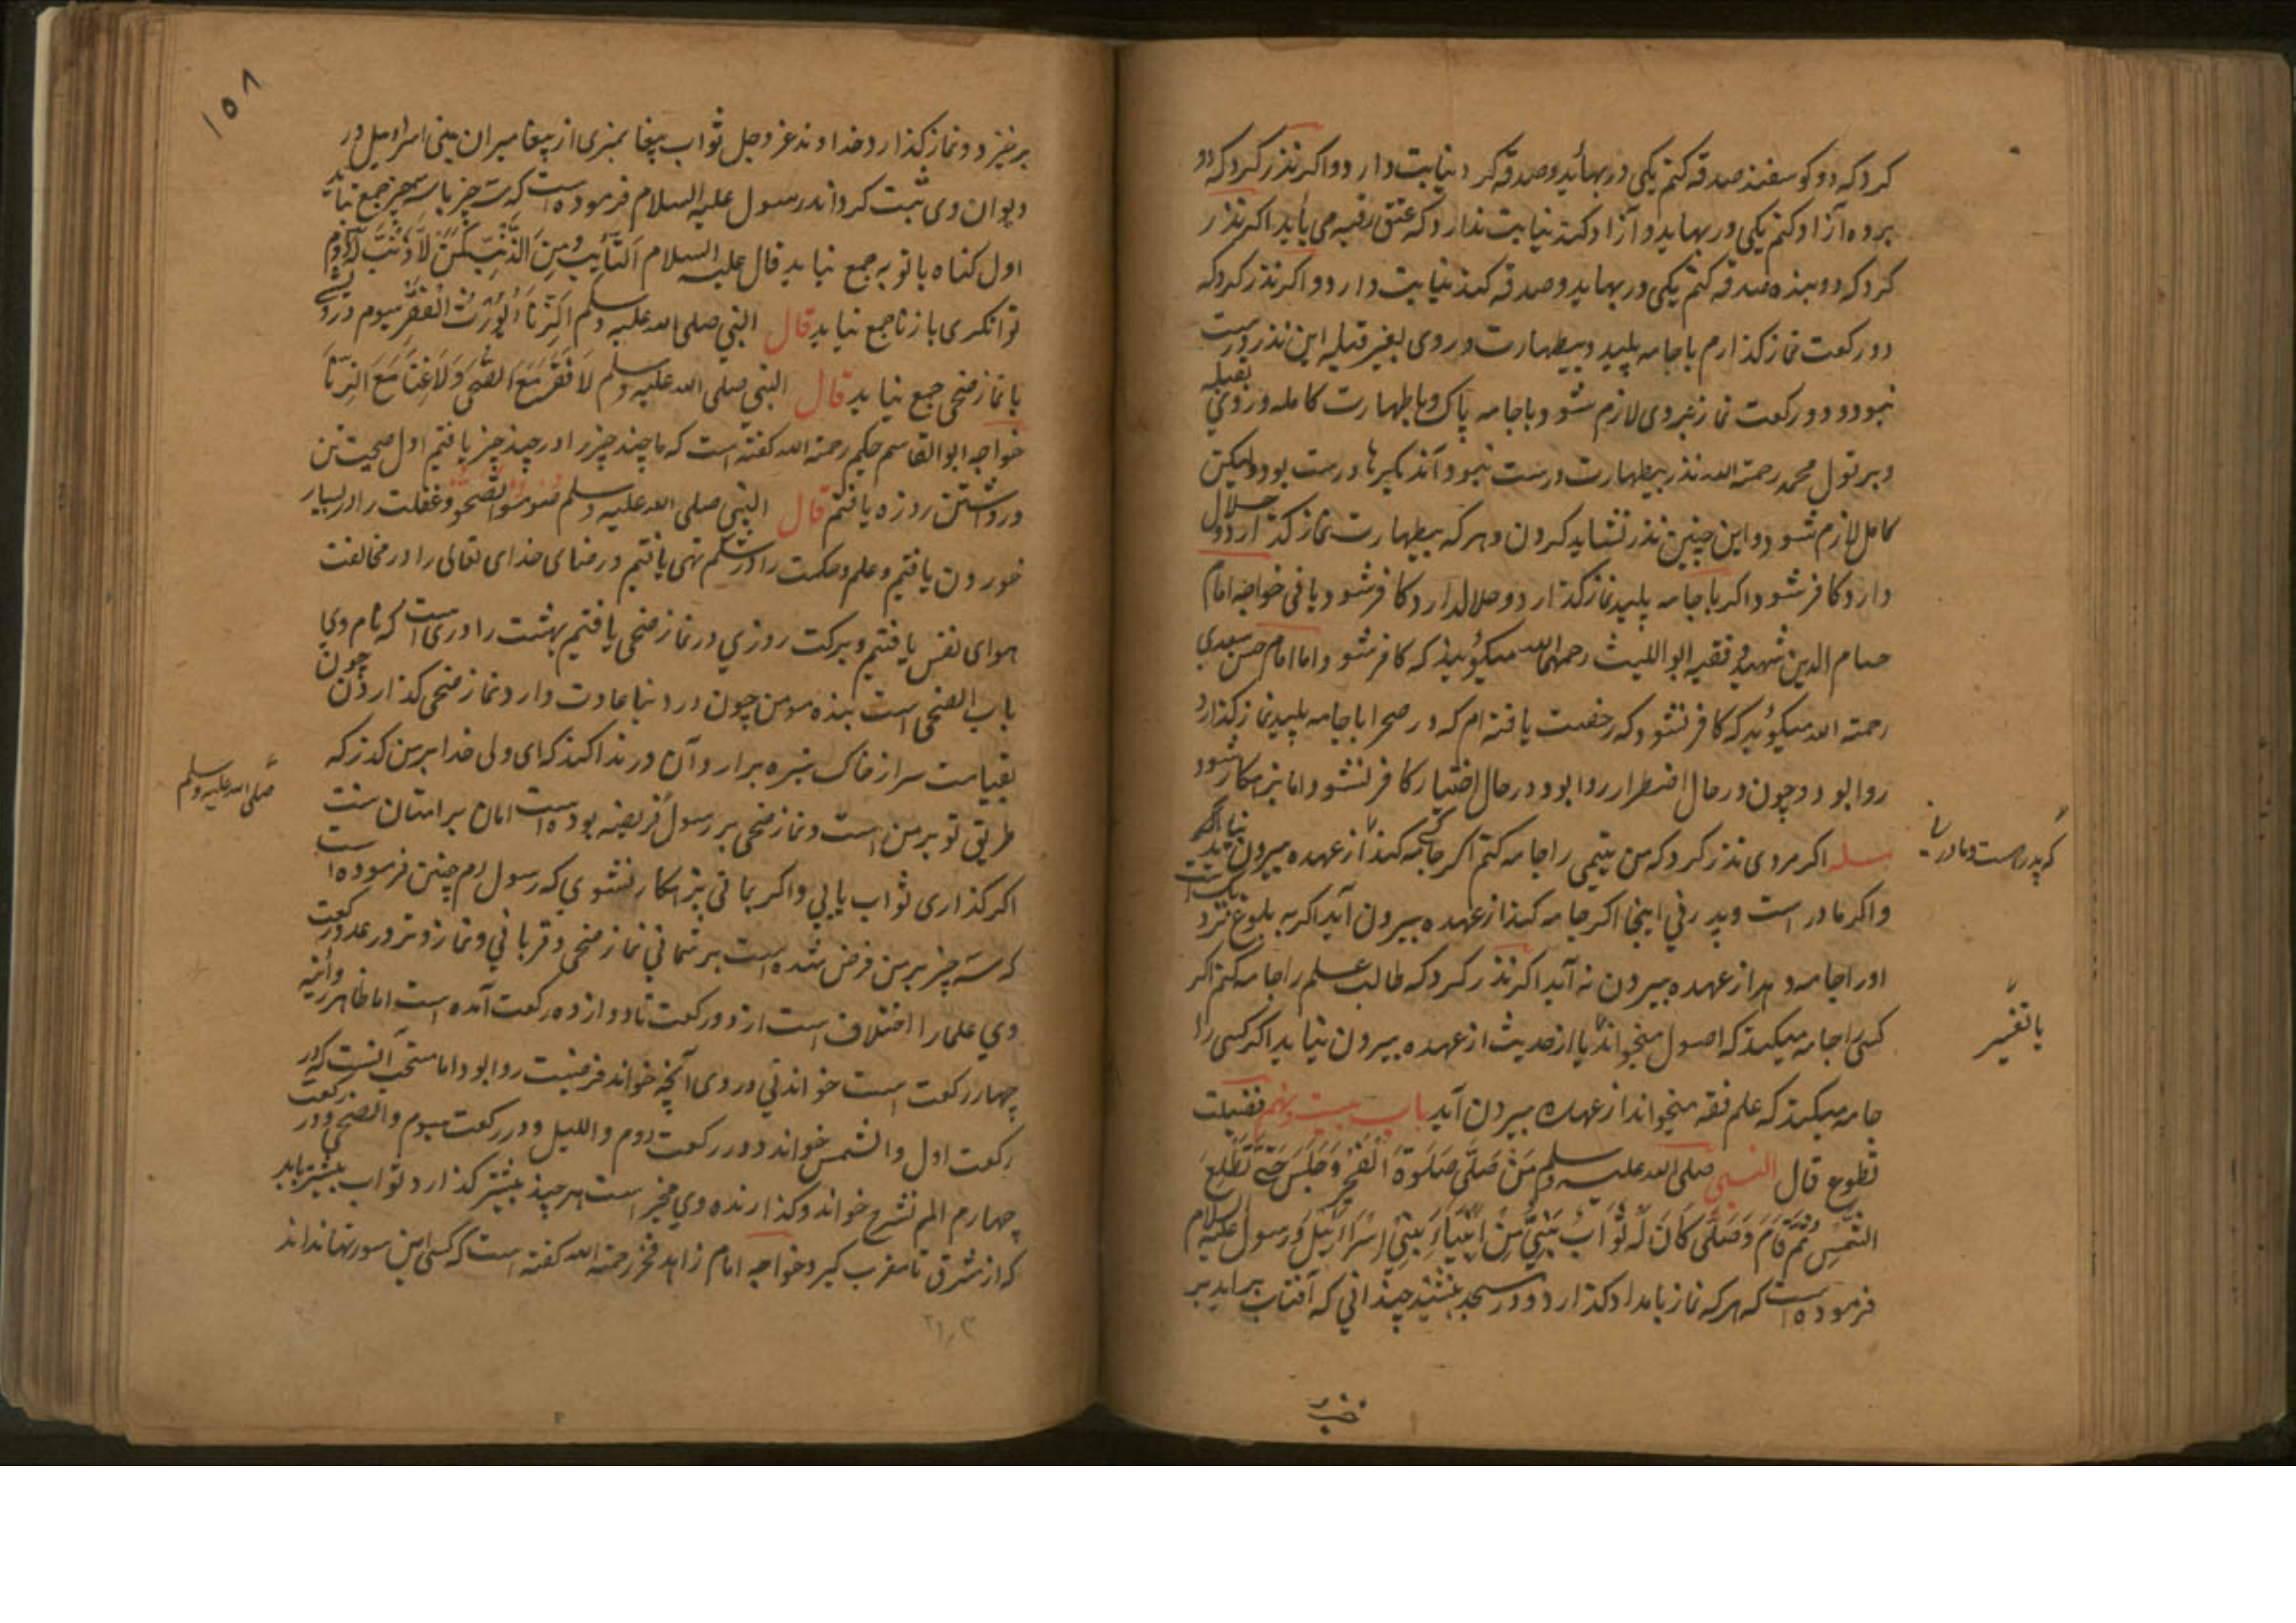 کرد که دو کوسفند صدقه کنم یکی در بهاید و صدقه کرد نیابت دارد و اکر نذر کرد که دو
برده آزاد کنم یکی در بهاید و آزاد کند نیابت ندارد که عتق رقبه می باید اکر نذر
کرد که دو بنده صدقه کنم یکی در بهاید و صدقه کند نیابت دارد و اکر نذر کرد که
دو رکعت نماز کذارم با جامه پلید و بیطهارت و روی بغیر قبله این نذر درست
نبود و دو رکعت نماز بروی لازم شود و با جامه پاک و با طهارت کامله و روی بقبله
و بر قول محمد رحمة الله نذر بیطهارت درست نبود و آند یکیرها درست بود ولیکن
کامل لازم شود و این چنین نذر نشاید کردن و هر که بیطهارت نماز کذارد و حلال
دارد کافر شود اکر با جامه پلید نماز کذارد و حلال دارد کافر شود یا نی خواجه امام
حسام الدین شهید و فقیه ابو اللیث رحمهما الله میکویند که کافر شود و اما امام حسن سعیدی
رحمة الله میکوید که کافر نشود که رخصت یافته ام که در صحرا با جامه پلید نماز کذارد
روا بود و چون در حال اضطرار روا بود در حال اختیار کافر نشود اما بزه کار شود
مسله اکر مردی نذر کرد که من یتیمی را جامه کنم اکر جامه کند از عهده بیرون نیاید اکر
که پدر است و مادر نی
و اکر مادر است و پدر نی اینجا اکر جامه کند از عهده بیرون آید اکر به بلوغ نزدیک است
او را جامه دهد از عهده بیرون نه آید اکر نذر کرد که طالب علم را جامه کنم اکر
کسی را جامه میکند که اصول میخواند یا از حدیث از عهده بیرون نیاید اکر کسی را
یا تفسیر
جامه میکند که علم فقه میخواند از عهده بیرون آید باب بیست و نهم فضیلت
تطوع قال النبی صلی الله علیه وسلم مَنْ صَلَّی صَلَوةَ الْفَجْرِ وَجَلَسَ حَتَّی تَطْلُعَ
الشَّمْسِ ثُمَّ قَامَ وَصَلَّی کَانَ لَهُ ثَوَابُ نَبِیٍّ مِنْ اَنْبِیَاءِ بَنِی اِسْرَائِیلَ و رسول علیه السلام
فرموده است که هر که نماز بامداد کذارد و در مسجد بنشیند چندانی که آفتاب براید بر
خیزد
۱۵۸
برخیزد و نماز کذارد خداوند عز و جل ثواب پیغامبری از پیغامبران بنی اسراییل در
دیوان وی ثبت کرداند رسول علیه السلام فرموده است که سه چیز با سه چیز جمع نیاید
اول کناه با توبه جمع نیاید قال علیه السلام اَلتَّائِبُ مِنَ الذَّنْبِ کَمَنْ لَا ذَنْبَ لَهُ دوم
توانکری با زنا جمع نیاید قال النبی صلی الله علیه وسلم اَلزِّنَا یُورِثُ الْفَقْرَ سیوم درویشی
با نماز ضحی جمع نیاید قال النبی صلی الله علیه وسلم لَا فَقْرَ مَعَ الضُّحَی وَلَا غِنَا مَعَ الزِّنَا
خواجه ابو القاسم حکیم رحمة الله کفته است که ما چند چیز را در چند چیز یافتیم اول صحیت تن
در داشتن روزه یافتم قال النبی صلی الله علیه وسلم صُومُوا تَصِحُّو و غفلت را در بسیار
خوردن یافتیم و علم و حکمت را در شکم تهی یافتیم و رضای خدای تعالی را در مخالفت
هوای نفس یافتیم و برکت روزی در نماز ضحی یافتیم بهشت را دری است که نام وی
باب الضحی است بنده مومن چون در دنیا عادت دارد نماز ضحی کذاردن چون
بقیامت سر از خاک تیره برارد آن در ندا کند که ای ولی خدا بر من کذر که
طریق تو بر من است و نماز ضحی بر رسول فریضه بوده است اما بر امتان سنت
صلی الله علیه وسلم
اکر کذاری ثواب یابی و اکر بمانی بزه کار نشوی که رسول م چنین فرموده است
که سه چیز بر من فرض شده است بر شما نی نماز ضحی و قربانی و نماز وتر در عدد رکعت
وی علما را اختلاف است از دو رکعت تا دوازده رکعت آمده است اما ظاهر روایة
چهار رکعت است خواندنی در وی آنچه خواند فرضیت روا بود اما مستحب آنست که در
رکعت اول والشمس خواند و در رکعت دوم واللیل و در رکعت سیوم والضحی و در رکعت
چهارم الم نشرح خواند و کذارنده وی مخیر است هر چند بیشتر کذارد ثواب بیشتر یابد
که از مشرق تا مغرب کیرد خواجه امام زاهد فخر رحمة الله کفته است که کسی این سورتها نداند